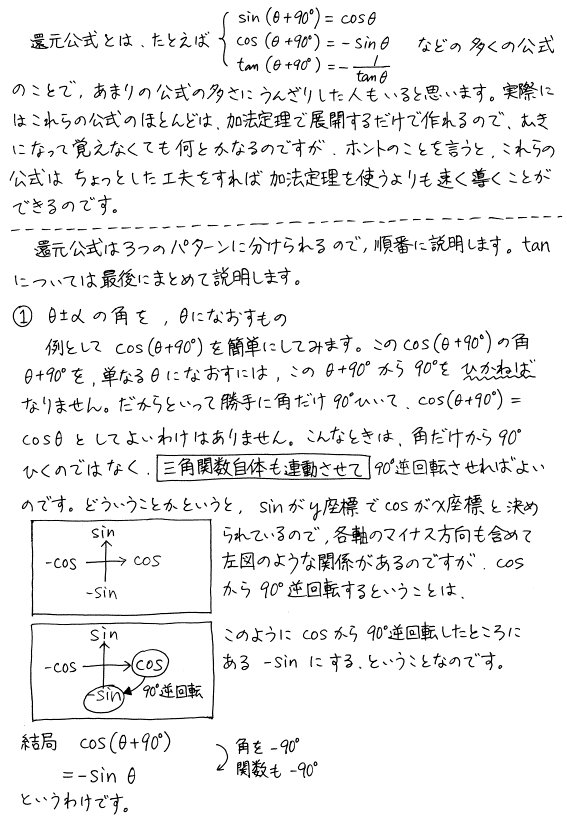 還元公式とは、たとえば { sin (θ+90°) = cosθ
cos (θ+90°) = -sinθ などの多くの公式
tan (θ+90°) = -1/tanθ
のことで, あまりの公式の多さにうんざりした人もいると思います。実際に
はこれらの公式のほとんどは、加法定理で展開するだけで作れるので、むき
になって覚えなくても何とかなるのですが、ホントのことを言うと、これらの
公式はちょっとした工夫をすれば加法定理を使うよりも速く導くことが
できるのです。
還元公式は3つのパターンに分けられるので, 順番に説明します。tan
については最後にまとめて説明します。
① θ±αの角を, θになおすもの
例として cos(θ+90°) を簡単にしてみます。このcos(θ+90°) の角
θ+90°を, 単なるθになおすには, この θ+90° から 90°を ひかねば
なりません。だからといって勝手に角だけ 90°ひいて、cos(θ+90°) =
cosθ としてよいわけはありません。こんなときは、角だけから 90°
ひくのではなく、三角関数自体も連動させて 90°逆回転させればよい
のです。どういうことかというと, sinがy座標でcosがx座標と決め
られているので, 各軸のマイナス方向も含めて
左図のような関係があるのですが、cos
から 90°逆回転するということは、
sin
-cos cos
-sin
このように cosから 90°逆回転したところに
ある -sin にする、ということなのです。
sin
-cos cos
-sin 90°逆回転
結局 cos(θ+90°) 角を -90°
= -sin θ 関数も -90°
というわけです。